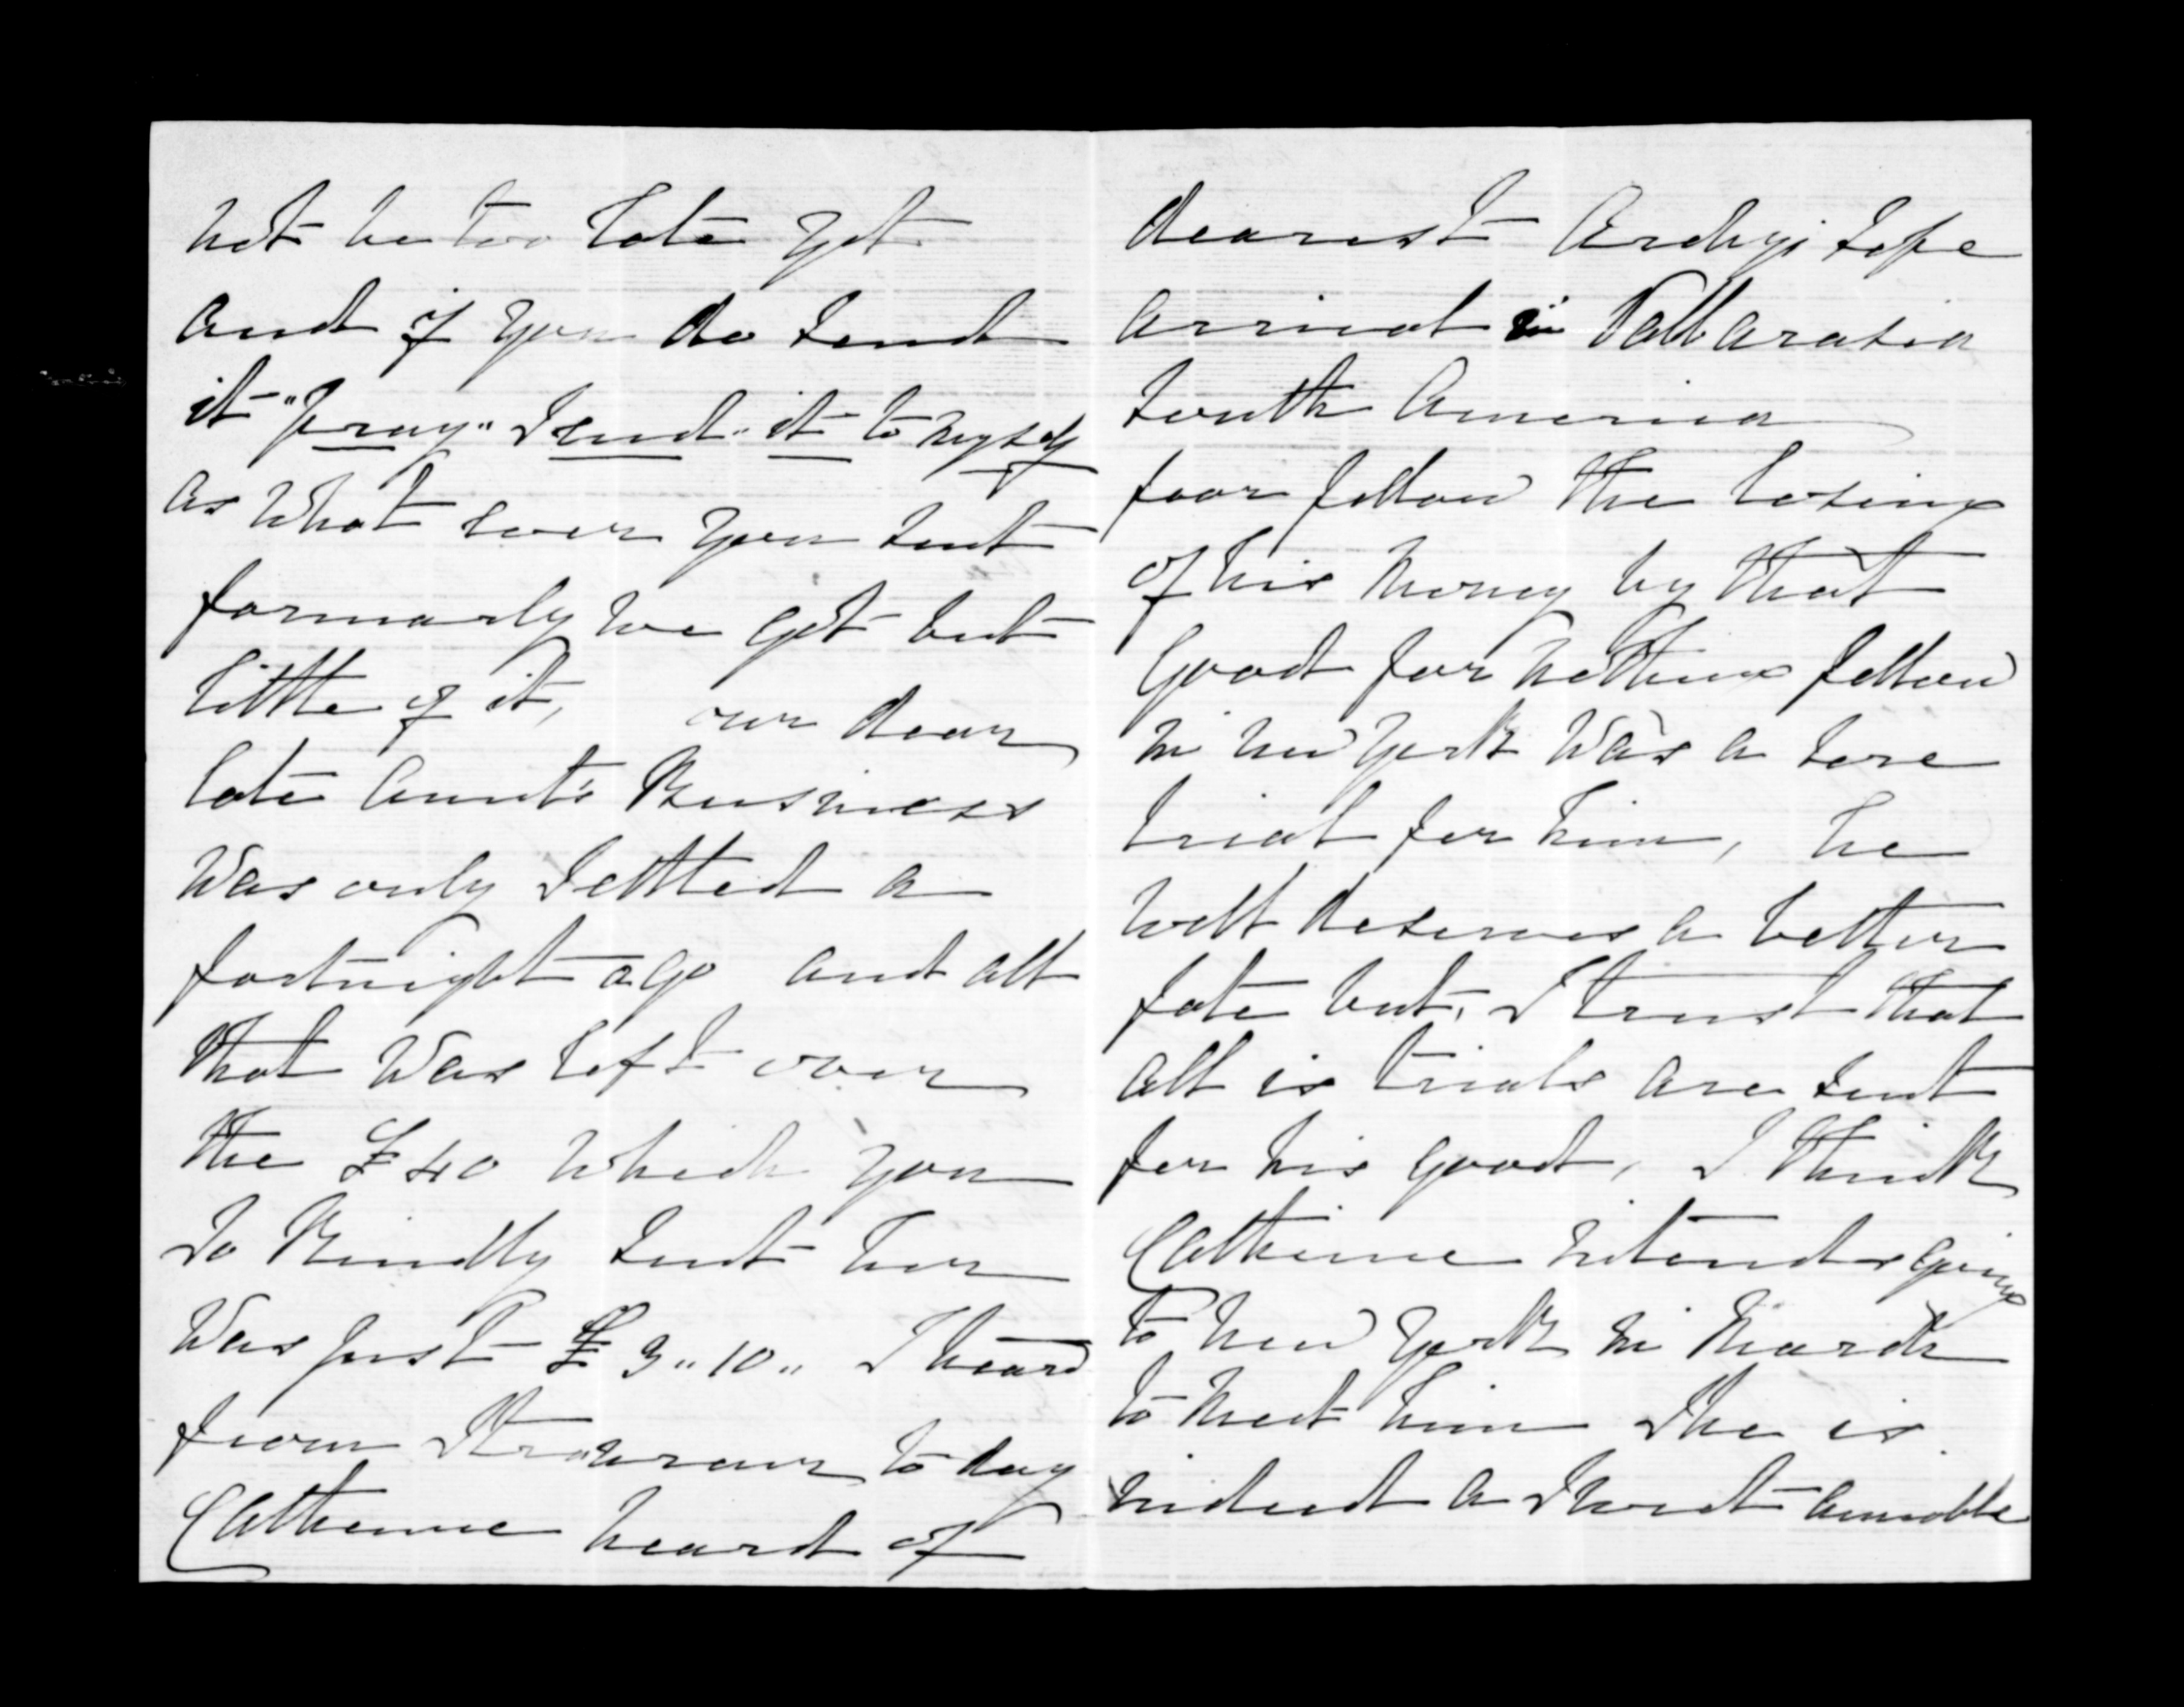 not be too late yet
and if you do send
it "pray" send it to myself
as what ever you sent
formarly we got but
little of it, our dear
late Aunt's Business
Was only Settled a
fortnight ago and all
that Was left over
the £40 which you
So Kindly sent her
Was just £3"10" I heard
from Stranraer to day
Catherine heard of
dearest Archys safe
arrival in Vallparasia
South America
poor fellow the losing
of his money by that
Good for nothing fellow
in new York Was a sore
trial for him, he
well deserves a better
fate but, I trust that
all is trials are sent
for his good, I think
Catherine intends going
to new York in March
to meet him She is
indeed a Sweet amiable